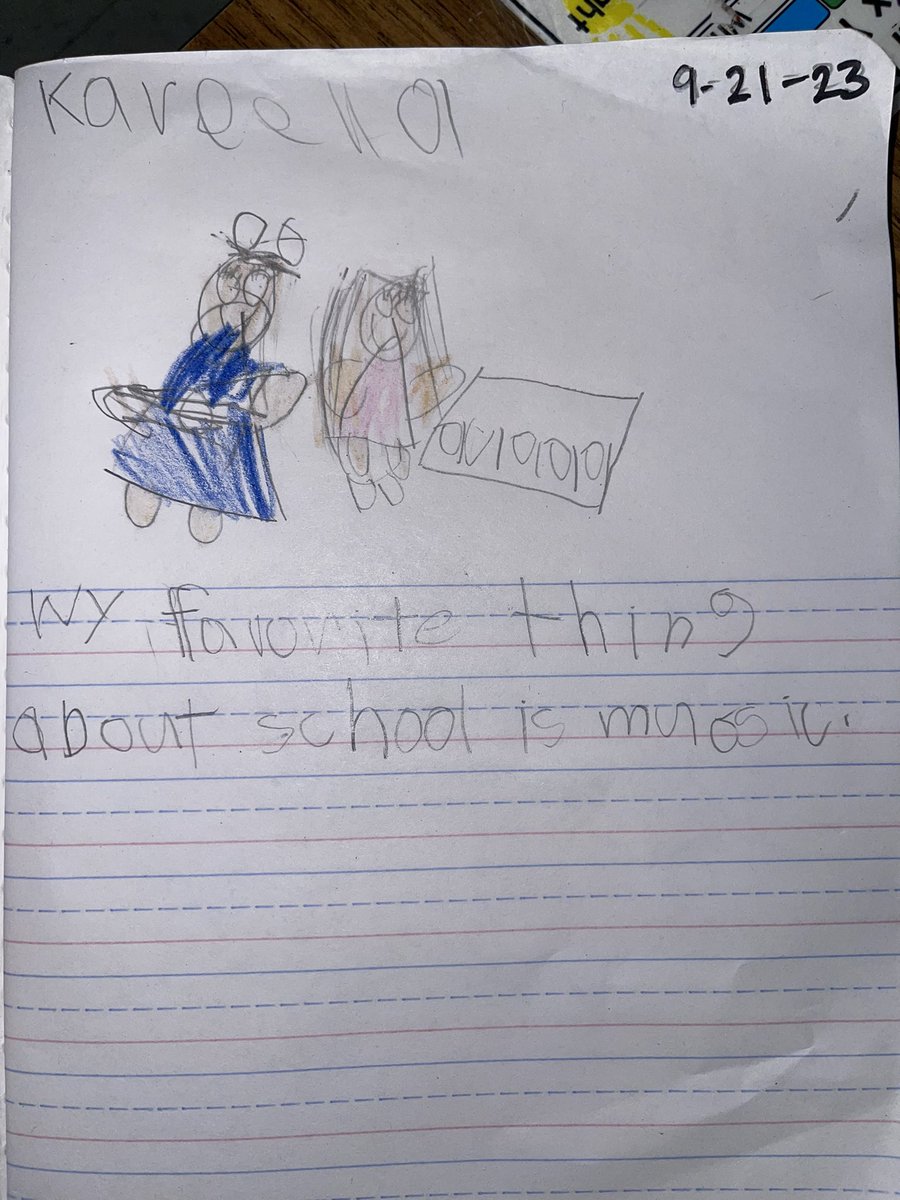 Kareella 9-21-23
My favorite thing
about school is muosic.